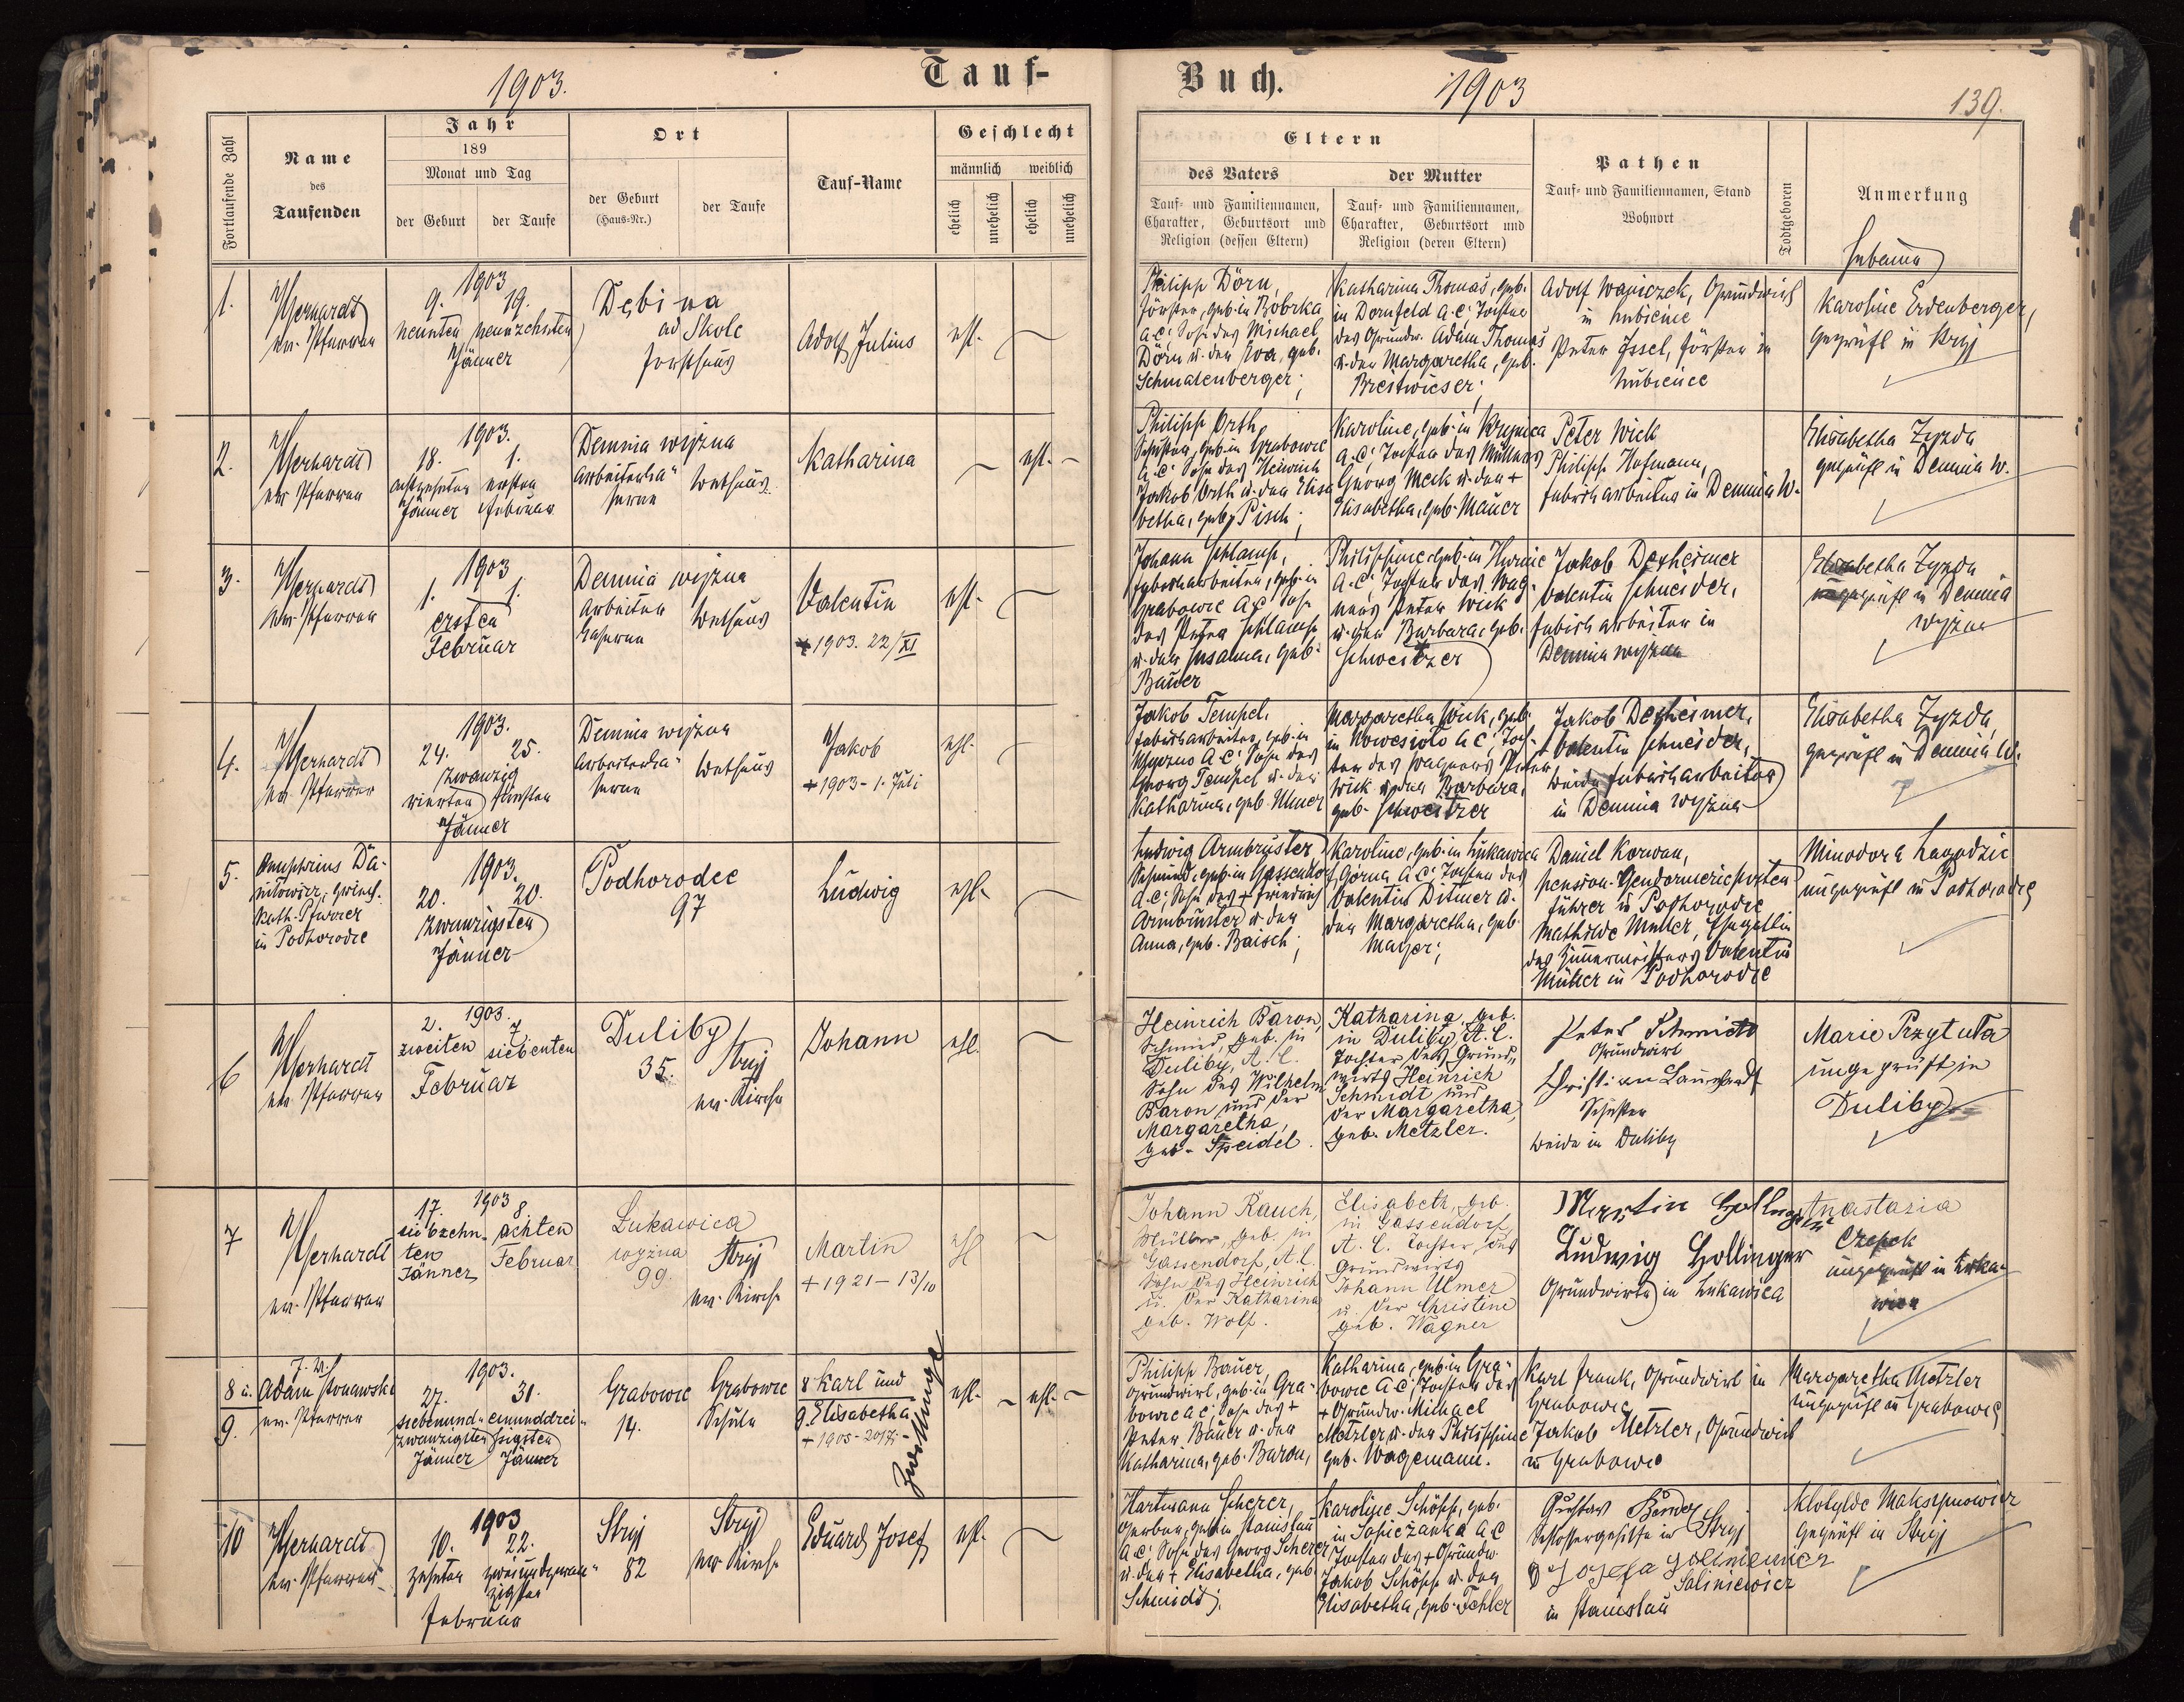 1903.
Tauf-
Buch.
1903
139.
Fortlaufende Zahl
Name
des
Taufenden
Jahr
189
Monat und Tag
der Geburt
der Taufe
Ort
der Geburt
(Haus-Nr.)
der Taufe
Tauf-Name
Geschlecht
männlich
weiblich
ehelich
unehelich
ehelich
unehelich
Eltern
des Vaters
Tauf- und Familiennamen,
Charakter, Geburtsort und
Religion (dessen Eltern)
der Mutter
Tauf- und Familiennamen,
Charakter, Geburtsort und
Religion (deren Eltern)
Pathen
Tauf- und Familiennamen, Stand
Wohnort
Todtgeboren
Anmerkung
Hebamme
1.
ev. Pfarrer
1903
9. 19.
neunten neunzehnten
Jänner
Dębina
ad Skole
Forsthaus
Adolf Julius
ehl.
Philipp Dörn,
Förster, geb. in Bobrka
A.C; Sohn des Michael
Dörn u. der Eva, geb.
Schmalenberger;
Katharina Thomas, geb.
in Dornfeld A.C; Tochter
des Grundw. Adam Thomas
u. der Margaretha, geb.
Adolf Waniczek, Grundwirth
in Hubience
Peter Issel, Förster in
Hubience
Karoline Erdenberger,
geprüft in Stryj
2.
ev. Pfarrer
1903.
18. 1.
achtzehnten ersten
Jänner Februar
Demnia wyżna
Arbeiterka-
serne
Bethaus
Katharina
ehl.
Philipp Orth
Schuster, geb. in Grabowce
A.C; Sohn des Heinrich
Jakob Orth u. der Elisa
betha, geb. Pisch;
Karoline, geb. in Krynica
A.C; Tochter des Müllers
Georg Meck u. der +
Elisabetha, geb. Mauer
Peter Wick
Philipp Hofmann,
Fabriksarbeiter in Demnia W.
Elisabetha Zyzda
geprüft in Demnia W.
3.
ev. Pfarrer
1903
1. 1.
ersten
Februar
Demnia wyżna
Arbeiter
Kaserne
Bethaus
Valentin
+ 1903. 22/XI
ehl.
Johann Schlamp,
Fabriksarbeiter, geb. in
Grabowce A.C; Sohn
des Peter Schlamp
u. der Susanna, geb.
Bauer
Philippine, geb. in Hurnie
A.C; Tochter des Wag-
ners Peter Wick
u. der Barbara, geb.
Schweitzer
Jakob Dexheimer
Valentin Schneider,
Fabriksarbeiter in
Demnia wyżna
Elisabetha Zyzda
geprüft in Demnia
wyżna
4.
ev. Pfarrer
1903.
24. 25.
zwanzig
vierten fünften
Jänner
Demnia wyżna
Arbeiterka-
serne
Bethaus
Jakob
+ 1903 - 1. Juli
ehl.
Jakob Tempel,
Fabriksarbeiter, geb. in
A.C; Sohn des
Georg Tempel u. der
Katharina, geb. Ulmer
Margaretha Wick, geb.
in Nowesioło A.C; Toch-
ter des Wagners Peter
Wick u. der Barbara,
geb. Schweitzer
Jakob Dexheimer,
Valentin Schneider,
beide Fabriksarbeiter
in Demnia wyżna
Elisabetha Zyzda,
geprüft in Demnia W.
5.
Onuphrius Da-
niłowicz, griech.
kath. Pfarrer
in Podhorodce
1903.
20. 20.
zwanzigsten
Jänner
Podhorodce
97
Ludwig
ehl.
Ludwig Armbruster
Schmied, geb. in Gassendorf
A.C; Sohn des + Friedrich
Armbruster u. der
Anna, geb. Baisch;
Karoline, geb. in Lukawica
Gorna A.C; Tochter des
Valentin Ditmer u.
der Margaretha, geb.
Mayer;
Daniel Korwan,
pension. Gendarmerieposten
führer in Podhorodce
Mathilde Müller, Ehegattin
des Zimmermeisters Valentin
Müller in Podhorodce
Minodora Hagodzic
ungeprüft in Podhorodce
6
ev. Pfarrer
1903.
2. 7
zweiten siebenten
Februar
Duliby
35.
Stryj
ev. Kirche
Johann
ehl.
Heinrich Baron,
Schmied, geb. in
Duliby, A.C.
Sohn des Wilhelm
Baron und der
Margaretha,
geb. Speidel.
Katharina, geb.
in Duliby, A.C.
Tochter des Grund-
wirts Heinrich
Schmidt und
der Margaretha,
geb. Metzler.
Peter Schmidt
Grundwirt
Schuster
beide in Duliby
Marie Przytuła
ungeprüft in
Duliby
7
ev. Pfarrer
1903
17. 8.
siebzehn- achten
ten Februar
Jänner
Łukawica
wyżna
99.
Stryj
ev. Kirche
Martin
+ 1921 - 13/10
ehl
Johann Rauch,
Müller, geb. in
Gassendorf, A.C.
Sohn des Heinrich
u. der Katharina
geb. Wolf.
Elisabeth, geb.
in Gassendorf,
A.C. Tochter des
Grundwirts
Johann Ulmer
u. der Christine
geb. Wagner
Martin Hollinger
Ludwig Hollinger
Grundwirte in Lukawica
Anastasia
ungeprüft in Luka-
wica
8 u.
9.
Adam
ev. Pfarrer
1903.
27. 31.
siebenund- einunddrei-
zwanzigsten ssigsten
Jänner Jänner
Grabowce
14.
Grabowce
Schule
8 Karl und
9. Elisabetha
Zwillinge
ehl.
ehl.
Philipp Bauer,
Grundwirt, geb. in Gra-
bowce A.C; Sohn des +
Peter Bauer u. der
Katharina, geb. Baron,
Katharina, geb. in Gra-
bowce A.C; Tochter des
+ Grundw. Michael
Metzler u. der Philippine
geb. Wagemann.
Karl Frank, Grundwirt in
Grabowce
Jakob Metzler, Grundwirt
in Grabowce
Margaretha Metzler
ungeprüft in Grabowce
10
ev. Pfarrer
1903
10. 22.
zehnten zweiundzwan-
zigsten
Februar
Stryj
82
Stryj
ev. Kirche
Eduard Josef
ehl.
Hartmann Scherer,
Gerber, geb. in Stanislau
A.C; Sohn des Georg Scherer
u. der + Elisabetha, geb.
Schmidt;
Karoline Schöpp, geb.
in Sapieżanka A.C
Tochter des + Grundw.
Jakob Schöpp u. der
Elisabetha, geb. Fehler
Gustav
Schlossergehilfe in Stryj
Saliniewicz
in Stanislau
Klotylde Maksymowicz
geprüft in Stryj